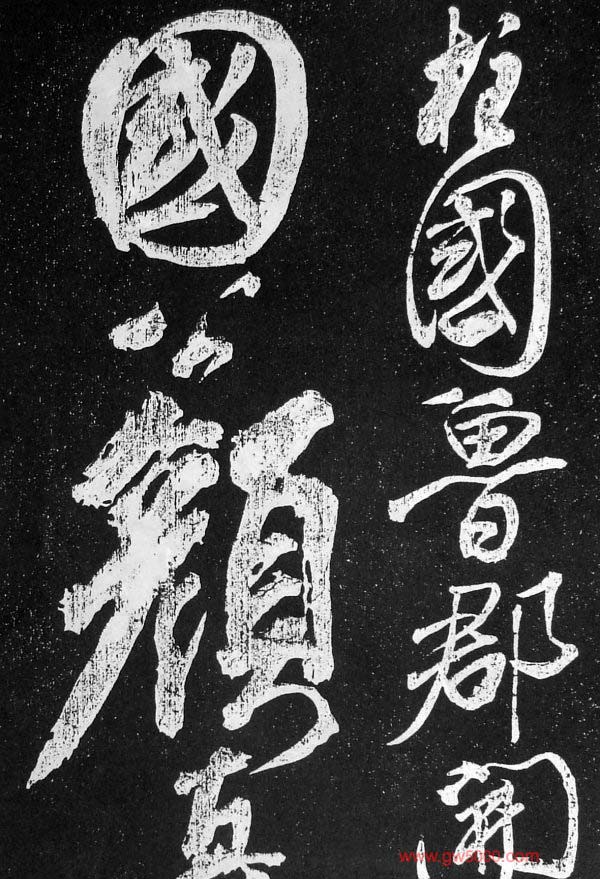 柱國魯郡開
國公顏真
www.gw5000.com